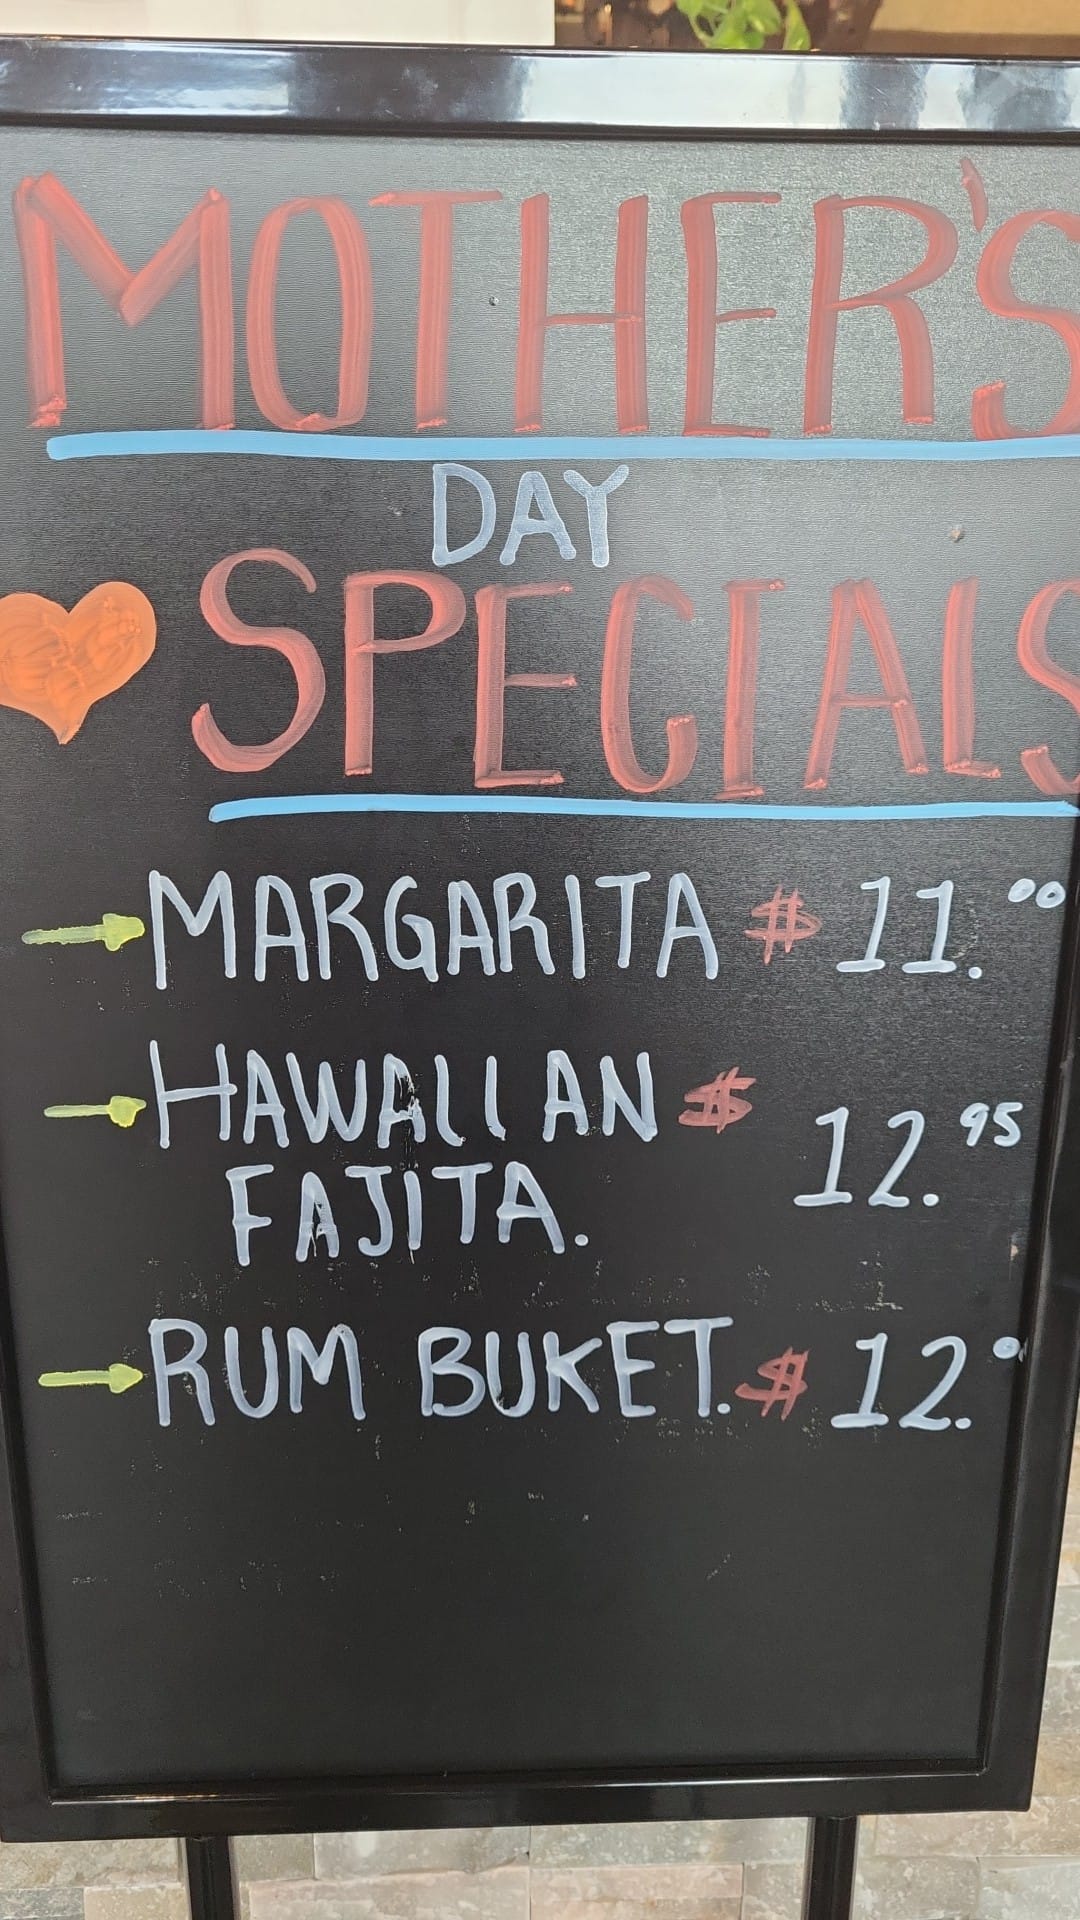 MOTHER'S
DAY
SPECIALS
MARGARITA $ 11.00
HAWAIIAN $ 12.95
FAJITA.
RUM BUKET. $ 12.00